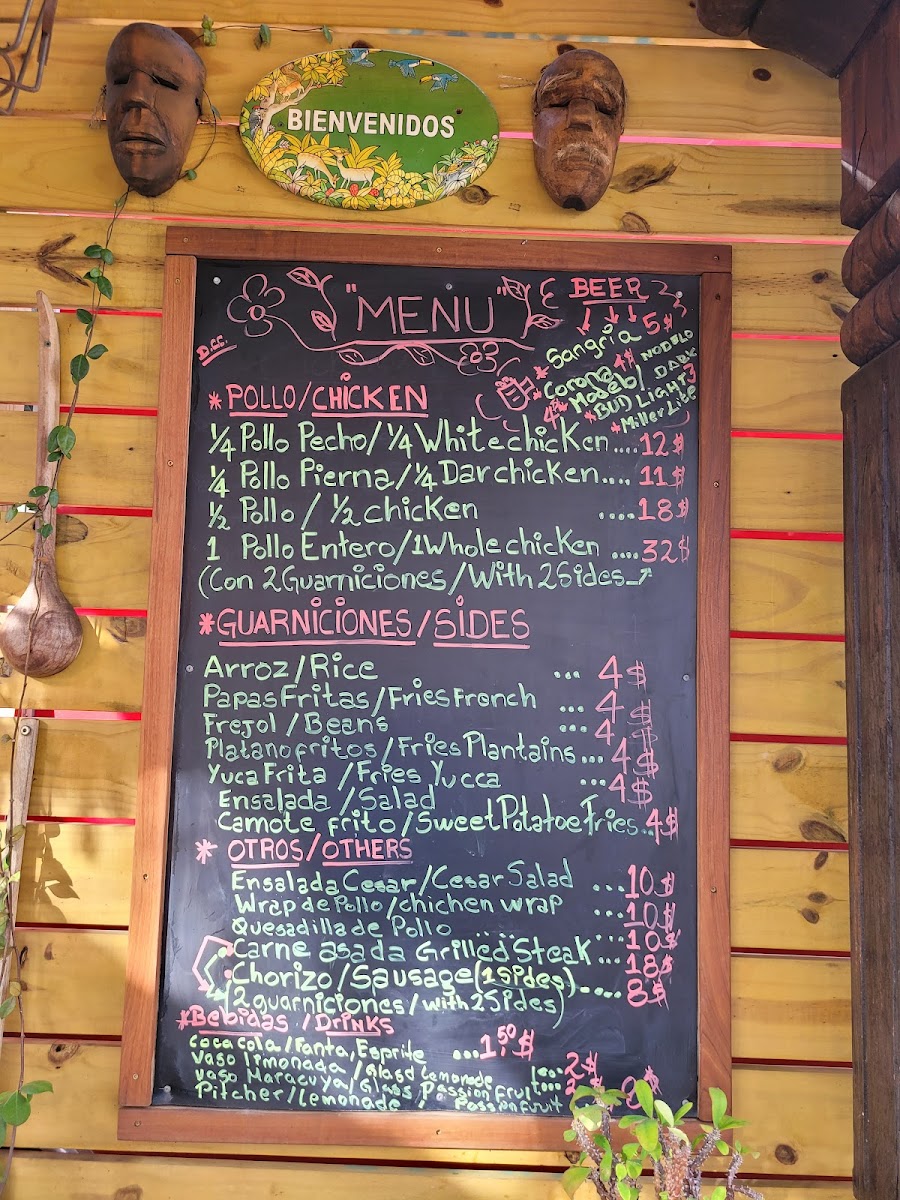 BIENVENIDOS
"MENU"
BEER
D.CC.
Sangria 5$
Corona 4$
Modelo
4$
MODELO DARK
*BUD LIGHT 3
*Miller Lite
*POLLO/CHICKEN
1/4 Pollo Pecho/1/4 White chicken....12$
1/4 Pollo Pierna/1/4 Dar chicken....11$
1/2 Pollo / 1/2 chicken ....18$
1 Pollo Entero/1 Whole chicken ....32$
(Con 2 Guarniciones/With 2 Sides
*GUARNICIONES/SIDES
Arroz/Rice ... 4$
Papas Fritas/Fries French ... 4$
Frejol/Beans ... 4$
Platano fritos/Fries Plantains... 4$
Yuca Frita /Fries Yucca ...4$
Ensalada /Salad
Camote frito/Sweet Potatoe Fries..4$
* OTROS/OTHERS
Ensalada Cesar/Cesar Salad ...10$
Wrap de Pollo/chichen wrap ...10$
Quesadilla de Pollo ...10$
Carne asada Grilled Steak...18$
Chorizo/Sausage(1 Sides)....8$
(2 guarniciones/with 2 Sides)
*Bebidas /Drinks
Coca Cola/Fanta, Esprite ...1.50$
Vaso limonada/Glasd Lemonade ... 2$
Vaso Maracuya/Glass Passion Fruit...
Pitcher/Lemonade / Passion Fruit